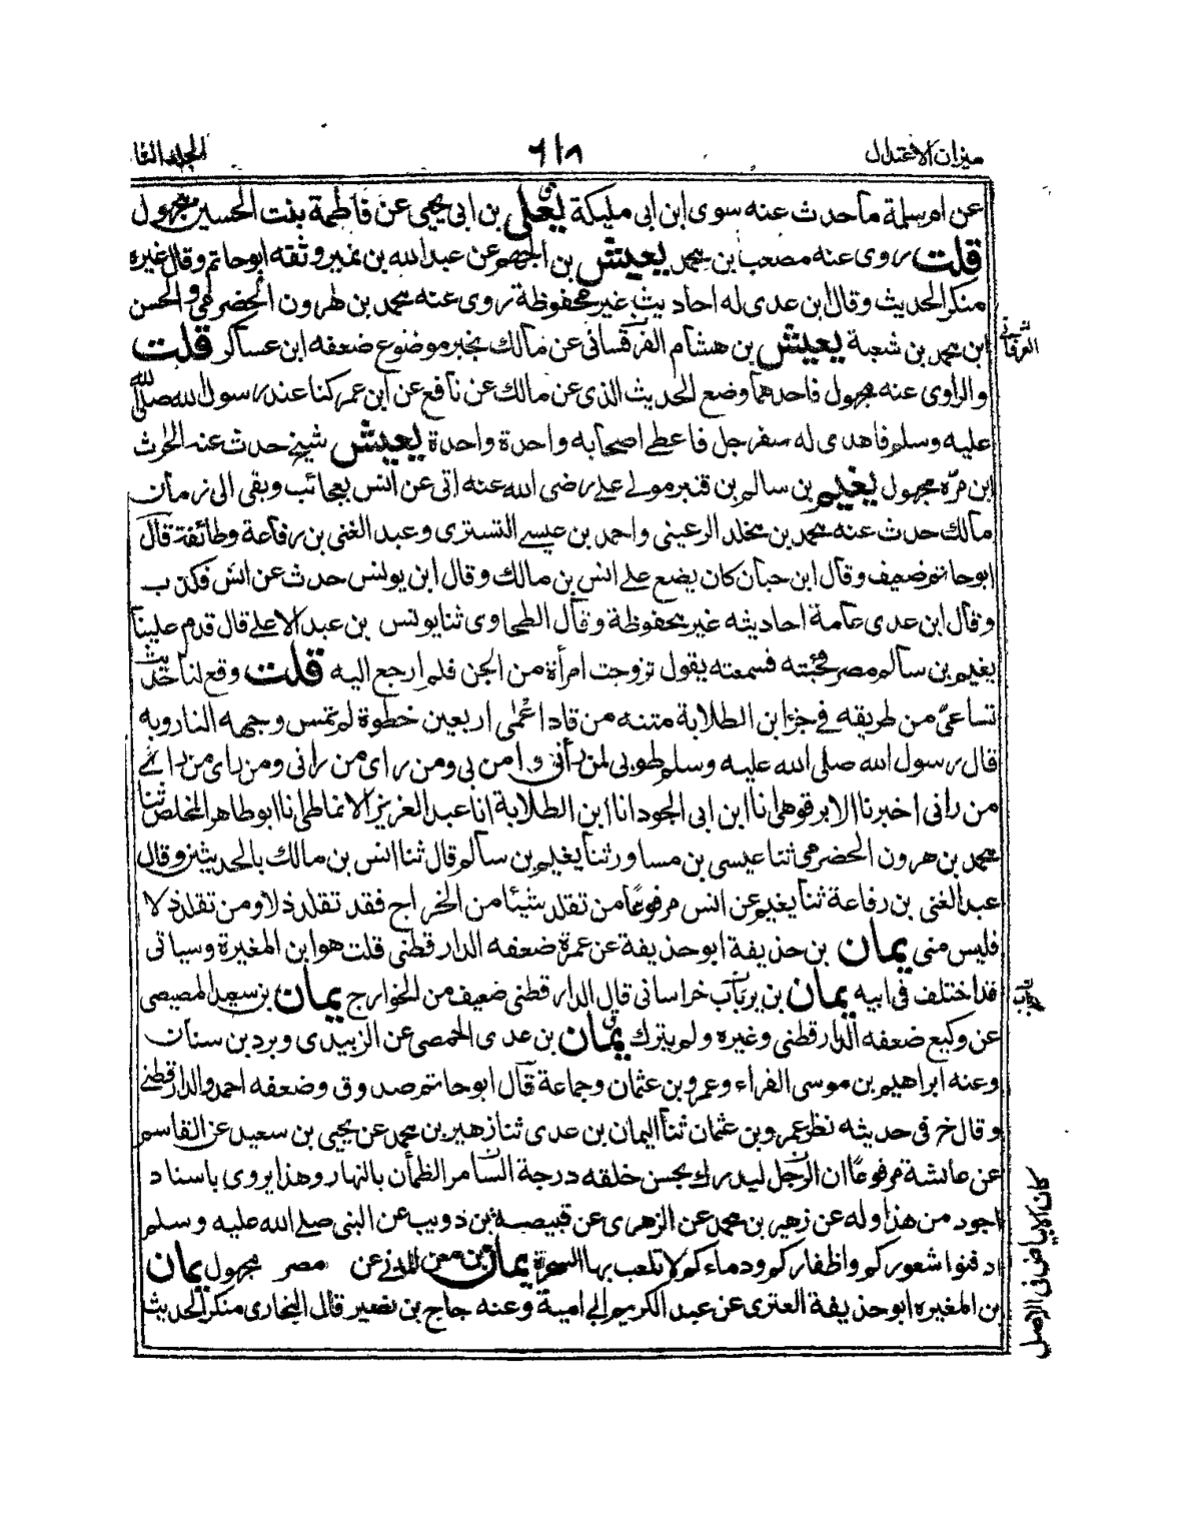 ميزان الاعتدال
٦١٨
الجلد الثا
عن ام سلمة ما حدث عنه سوى ابن ابي مليكة يعلى بن ابي يحيى عن فاطمة بنت الحسين مجهول
قلت روى عنه مصعب بن محمد يعيش بن الجهم عن عبد الله بن نمير وثقه ابو حاتم وقال غيره
منكر الحديث وقال ابن عدى له احاديث غير محفوظة روى عنه محمد بن هرون الحضرمي والحسن
ابن محمد بن شعبة يعيش بن هشام القرقسانى عن مالك بخبر موضوع ضعفه ابن عساكر قلت
والراوى عنه مجهول فاحدهما وضع الحديث الذى عن مالك عن نافع عن ابن عمر كنا عند رسول الله صلى الله
عليه وسلم فاهدى له سفرجل فاعطى اصحابه واحدة واحدة يعيش شيخ حدث عنه الحرث
ابن مرة مجهول يغنم بن سالم بن قنبر مولى على رضى الله عنه اتى عن انس بعجائب وبقى الى زمان
مالك حدث عنه محمد بن مخلد الرعينى واحمد بن عيسى التسترى وعبد الغنى بن رفاعة وطائفة قال
ابو حاتم ضعيف وقال ابن حبان كان يضع على انس بن مالك وقال ابن يونس حدث عن انس فكذب
وقال ابن عدى عامة احاديثه غير محفوظة وقال الطحاوى ثنا يونس بن عبد الاعلى قال قدم علينا
يغنم بن سالم مصر فجئته فسمعته يقول تزوجت امرأة من الجن فلم ارجع اليه قلت وقع لنا حديث
تساعى من طريقه فى جزء ابن الطلاية متنه من قاد اعمى اربعين خطوة لم تمس وجهه النار وبه
قال رسول الله صلى الله عليه وسلم طوبى لمن رأنى وامن بى ومن راى من رانى ومن راى من رائ
من رانى اخبرنا الابرقوهى انا ابن ابى الجود انا ابن الطلاية انا عبد العزيز الانماطى انا ابو طاهر المخلص ثنا
محمد بن هرون الحضرمى ثنا عيسى بن مساور ثنا يغنم بن سالم قال ثنا انس بن مالك بالحديثين وقال
عبد الغنى بن رفاعة ثنا يغنم عن انس مرفوعا من تقلد شيئا من الخراج فقد تقلد ذلا ومن تقلد ذلا
فليس منى يمان بن حذيفة ابو حذيفة عن عمرة ضعفه الدارقطنى قلت هو ابن المغيرة وسياتى
قد اختلف فى ابيه يمان بن رباب خراسانى قال الدارقطنى ضعيف من الخوارج يمان بن سعيد المصيصى
عن وكيع ضعفه الدارقطنى وغيره ولم يترك يمان بن عدى الحمصى عن الزبيدى وبرد بن سنان
وعنه ابراهيم بن موسى الفراء وعمرو بن عثمان وجماعة قال ابو حاتم صدوق وضعفه احمد والدارقطنى
وقال خ فى حديثه نظر عمرو بن عثمان ثنا اليمان بن عدى ثنا زهير بن محمد عن يحيى بن سعيد عن القاسم
عن عائشة مرفوعا ان الرجل ليدرك بحسن خلقه درجة السامر الظمأن بالنهار وهذا يروى باسناد
اجود من هذا وله عن زهير بن محمد عن الزهرى عن قبيصة بن ذويب عن النبى صلى الله عليه وسلم
ادفنوا شعوركم واظفاركم ودماءكم لا تلعب بها السحرة يمان بن معن المدنى عن مصر مجهول يمان
بن المغيره ابو حذيفة العنزى عن عبد الكريم ابى امية وعنه حاج بن نصير قال البخارى منكر الحديث
كان الابياض فى الاصل